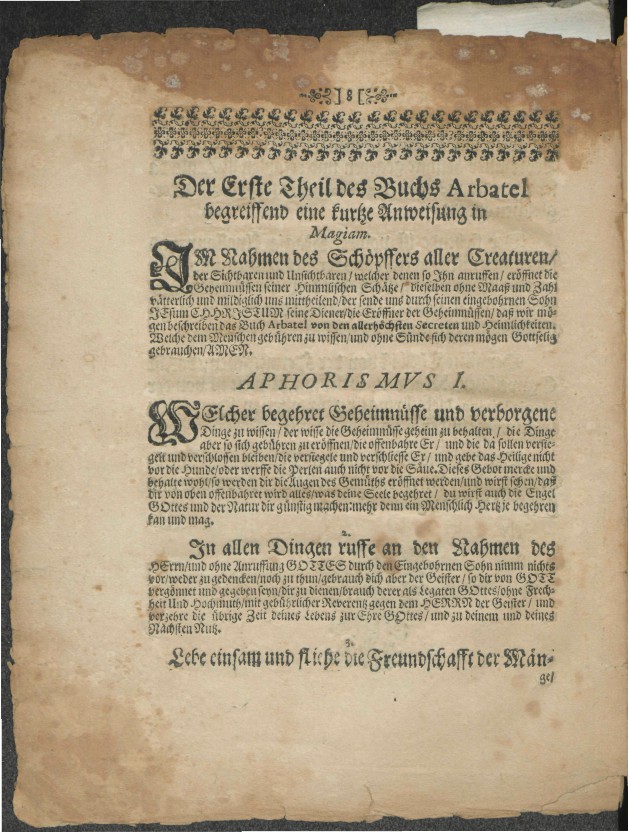 ] 8 [
Der Erste Theil des Buchs Arbatel
begreiffend eine kurtze Anweisung in
Magiam.
IM Nahmen des Schöpffers aller Creaturen/
der Sichtbaren und Unsichtbaren/ welcher denen so Ihn anruffen/ eröffnet die
Geheimnüssen seiner Himmlischen Schätze/ dieselben ohne Maaß und Zahl
vätterlich und mildiglich uns mittheilend/ der sende uns durch seinen eingebohrnen Sohn
JEsum CHHRISTUM seine Diener/ die Eröffner der Geheimnüssen/ daß wir mö-
gen beschreiben das Buch Arbatel von den allerhöchsten Secreten und Heimlichkeiten.
Welche dem Menschen gebühren zu wissen/ und ohne Sünde sich deren mögen Gottselig
gebrauchen/ AMEN.
APHORISMVS I.
WElcher begehret Geheimnüsse und verborgene
Dinge zu wissen/ der wisse die Geheimnüsse geheim zu behalten/ die Dinge
aber so sich gebühren zu eröffnen/ die offenbahre Er/ und die da sollen versie-
gelt und verschlossen bleiben/ die versiegele und verschliesse Er/ und gebe das Heilige nicht
vor die Hunde/ oder werffe die Perlen auch nicht vor die Säue. Dieses Gebot mercke und
behalte wohl/ so werden dir die Augen des Gemüths eröffnet werden/ und wirst sehen/ daß
dir von oben offenbahret wird alles/ was deine Seele begehret/ du wirst auch die Engel
GOttes und der Natur dir günstig machen: mehr denn ein Menschlich Hertz je begehren
kan und mag.
2.
In allen Dingen ruffe an den Nahmen des
HErrn/ und ohne Anruffung GOTTES durch den Eingebohrnen Sohn nimm nichts
vor/ weder zu gedencken/ noch zu thun/ gebrauch dich aber der Geister/ so dir von GOTT
vergönnet und gegeben seyn/ dir zu dienen/ brauch derer als Legaten GOttes/ ohne Frech-
heit Und Hochmuth/ mit gebührlicher Reverentz gegen dem HERRN der Geister/ und
verzehre die übrige Zeit deines Lebens zur Ehre GOttes/ und zu deinem und deines
Nächsten Nutz.
3.
Lebe einsam und fliehe die Freundschafft der Män-
ge/